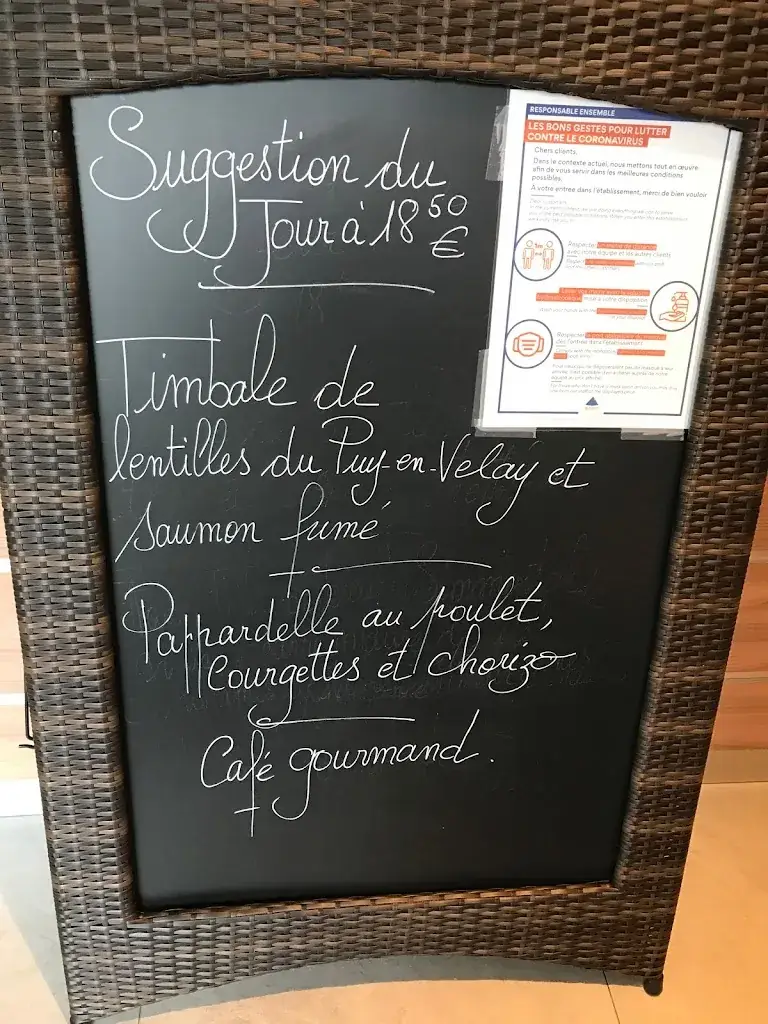 Suggestion du
Jour à 18 50
€
Timbale de
lentilles du Puy-en-Velay et
saumon fumé
Pappardelle au poulet,
Courgettes et chorizo
Café gourmand.
RESPONSABLE ENSEMBLE
LES BONS GESTES POUR LUTTER
CONTRE LE CORONAVIRUS
Chers clients,
Dans le contexte actuel, nous mettons tout en œuvre
afin de vous servir dans les meilleures conditions
possibles.
À votre entrée dans l'établissement, merci de bien vouloir
Respecter
avec notre équipe et les autres clients
mis à votre disposition
Respecter le port obligatoire du masque
dès l'entrée dans l'établissement